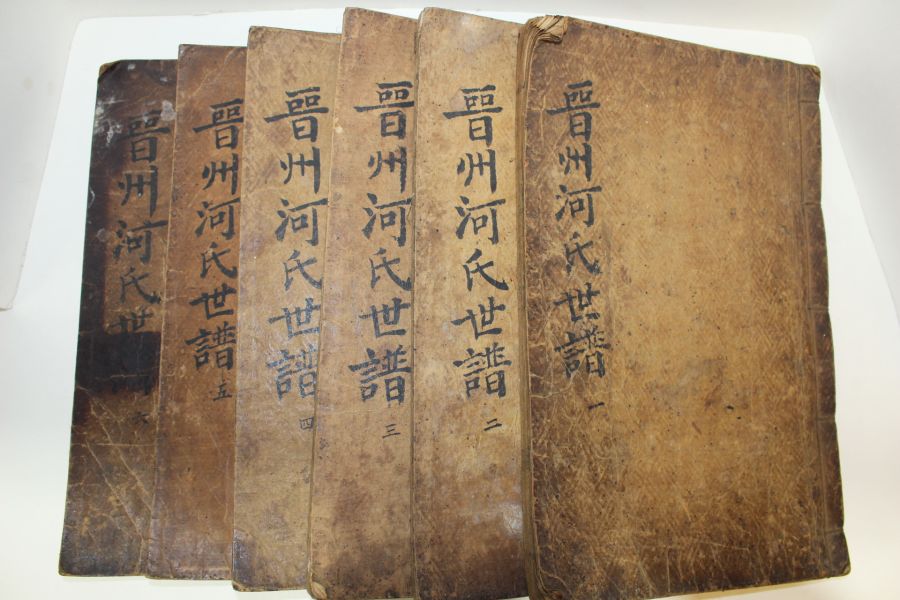 晉州河氏世譜 一
晉州河氏世譜 二
晉州河氏世譜 三
晉州河氏世譜 四
晉州河氏世譜 五
晉州河氏世 六